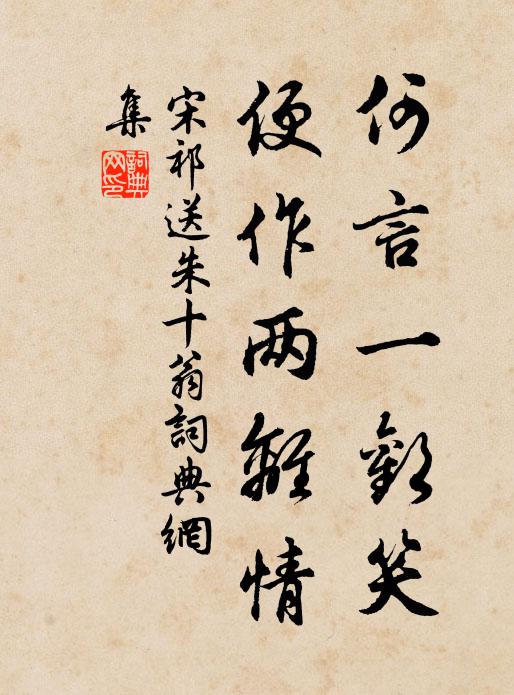 何言一歡笑
便作兩離情
宋祁送朱十翁詞典網
集
詞典
网印